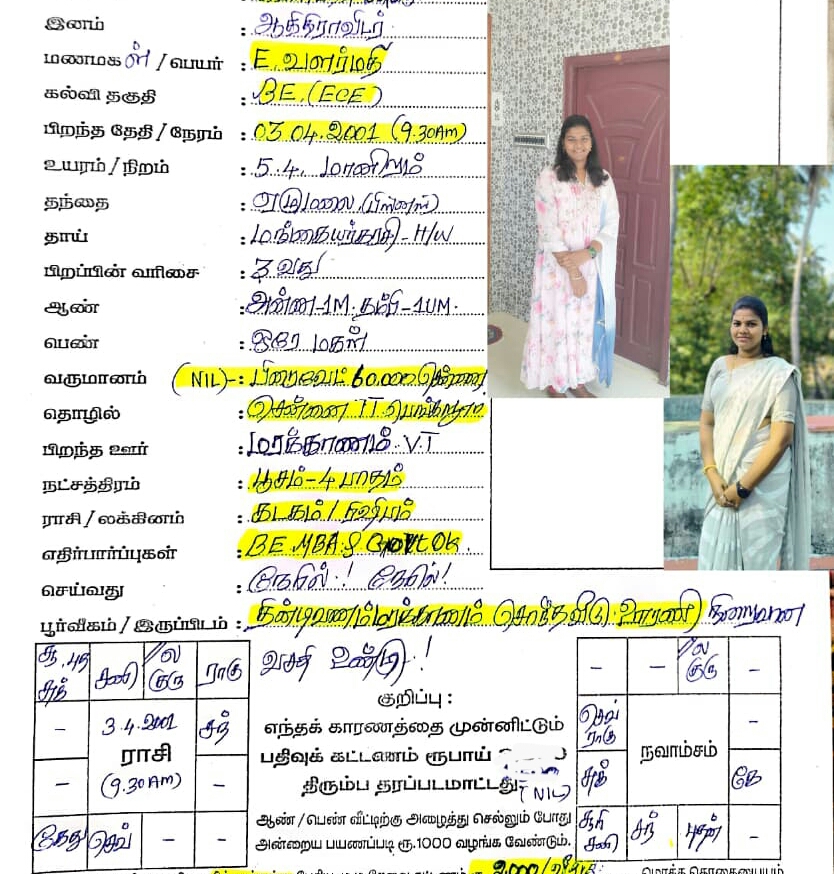 இனம் : ஆதிதிராவிடர்
மணமகள் / பெயர் : E. வளர்மதி
கல்வி தகுதி : BE. (ECE)
பிறந்த தேதி / நேரம் : 03.04.2001 (9.30Am)
உயரம் / நிறம் : 5.4. மாநிறம்
தந்தை : ஏழுமலை
தாய் : மங்கையர்கரசி - H/W
பிறப்பின் வரிசை : 3 வது
ஆண் : அண்ணன்-1M. தம்பி-1UM.
பெண் : ஒரே மகள்
வருமானம் (NIL)-: பிரைவேட் 60.000 சென்னை
தொழில் : சென்னை IT
பிறந்த ஊர் : மரக்காணம். V.T
நட்சத்திரம் : பூசம் - 4 பாதம்
ராசி / லக்கினம் : கடகம் / ரிஷபம்
எதிர்பார்ப்புகள் : BE. MBA.
செய்வது : நேரில் ! நேரில் !
பூர்வீகம் / இருப்பிடம் : திண்டிவணம் மரக்காணம் சொந்தவீடு நிறைவான
வசதி உண்டு !
சனி
ல குரு
ராகு
–
3.4.2001
ராசி
(9.30Am)
சந்
–
–
கேது
செவ்
–
–
குறிப்பு :
எந்தக் காரணத்தை முன்னிட்டும்
பதிவுக் கட்டணம் ரூபாய்
திரும்ப தரப்படமாட்டது (NIL)
ஆண் / பெண் வீட்டிற்கு அழைத்து செல்லும் போது
அன்றைய பயணப்படி ரூ.1000 வழங்க வேண்டும்.
–
–
ல குரு
–
செவ் ராகு
நவாம்சம்
–
கே
சனி
சந்
புதன்
–